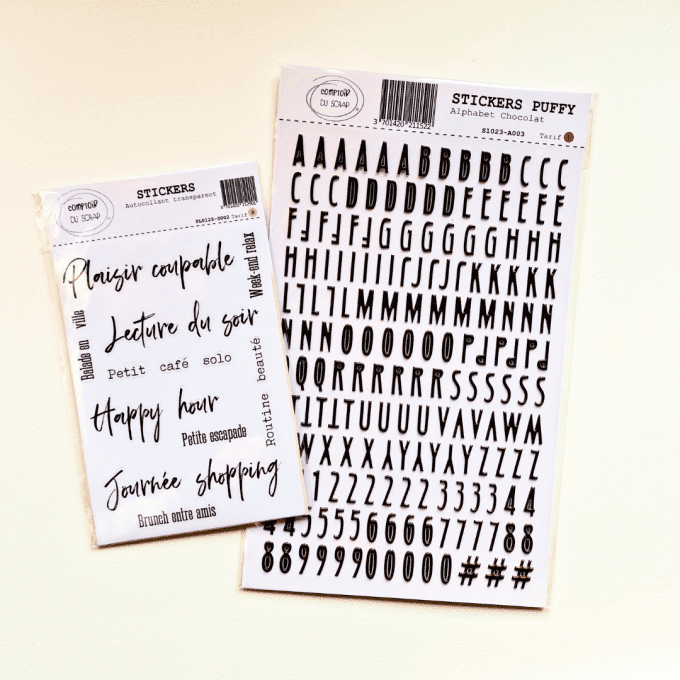 COMPTOIR
DU SCRAP
STICKERS
Autocollant transparent
Tarif
Plaisir coupable
Week-end relax
Balade en ville
Lecture du soir
Petit café solo
Routine beauté
Happy hour
Petite escapade
Journée shopping
Brunch entre amis
COMPTOIR
DU SCRAP
3 701420 211522
STICKERS PUFFY
Alphabet Chocolat
S1023-A003 Tarif
AAAAAABBBBBCCC
CCCDDDDDDEEEEEE
FFFFFFGGGGGGHHH
HHHIIIIIIJJJJJKKKKK
LLLLLMMMMMMNNN
NNNOOOOOOPPPPP
QQRRRRRRSSSSSS
TTTTTUUUUVVVWM
WXXXXYYYYYZZZZ
1122222333344
4455556666777788
88999900000###